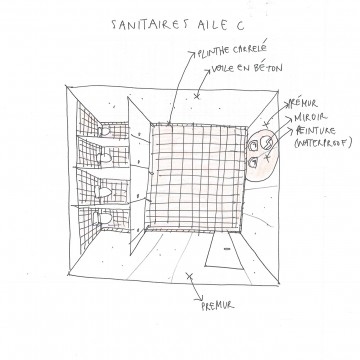 SANITAIRES AILE C
PLINTHE CARRELÉ
VOILE EN BÉTON
PRÉMUR
MIROIR
PEINTURE
(WATERPROOF)
PREMUR